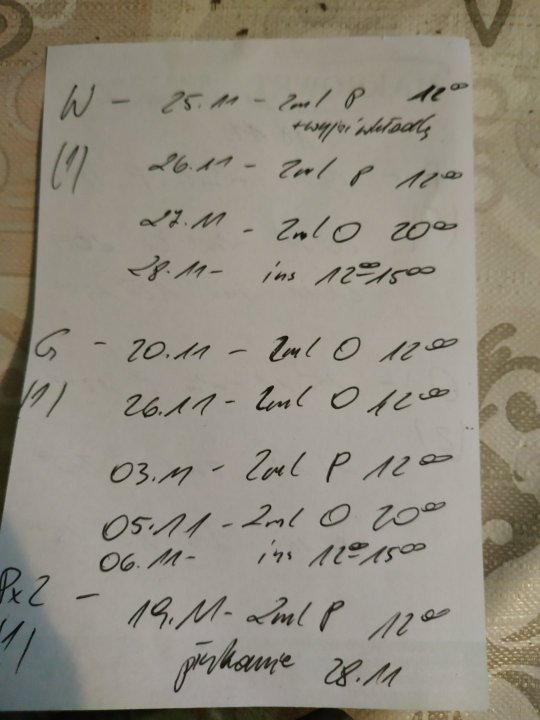 W - 25.11 - 2ml P 12⁰⁰
+ wyjąć wkładkę
(1) 26.11 - 2ml P 12⁰⁰
27.11 - 2ml O 20⁰⁰
28.11 - ins 12⁰⁰-15⁰⁰
G - 20.11 - 2ml O 12⁰⁰
(1) 26.11 - 2ml O 12⁰⁰
03.11 - 2ml P 12⁰⁰
05.11 - 2ml O 20⁰⁰
06.11 - ins 12⁰⁰-15⁰⁰
Px2 - 19.11 - 2ml P 12⁰⁰
(1) płukanie 28.11